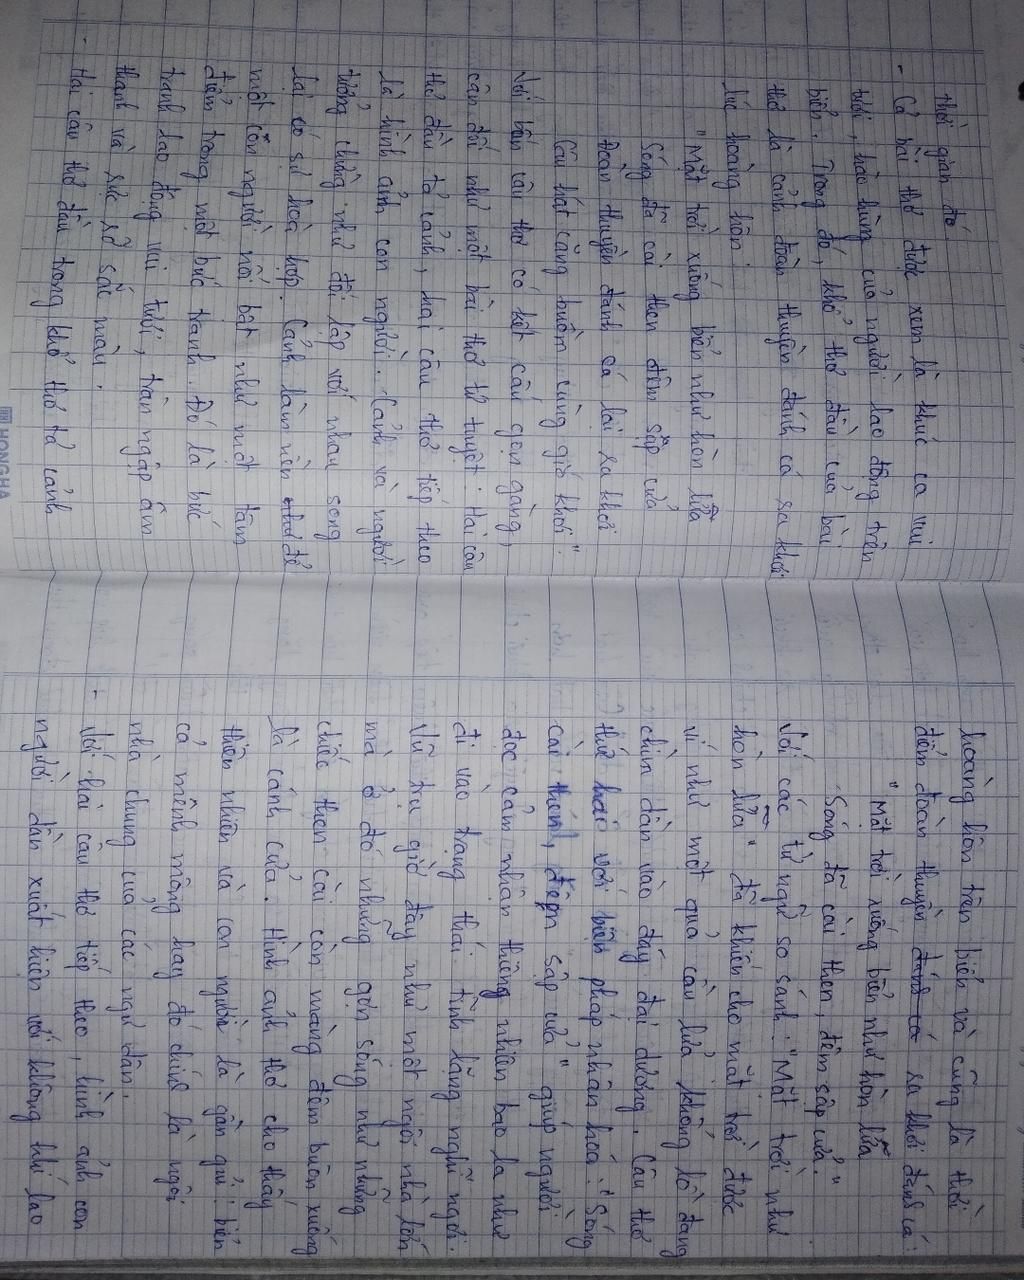 thời gian đó.
- Cả bài thơ được xem là khúc ca vui
tươi, hào hùng của người lao động trên
biển. Trong đó, khổ thơ đầu của bài
thơ là cảnh đoàn thuyền đánh cá ra khơi
lúc hoàng hôn:
"Mặt trời xuống biển như hòn lửa
Sóng đã cài then đêm sập cửa
Đoàn thuyền đánh cá lại ra khơi
Câu hát căng buồm cùng gió khơi".
Với bốn câu thơ có kết cấu gọn gàng,
cân đối như một bài thơ tứ tuyệt: Hai câu
thơ đầu tả cảnh, hai câu thơ tiếp theo
là hình ảnh con người. Cảnh và người
tưởng chừng như đối lập với nhau song
lại có sự hoà hợp. Cảnh làm nền để
một con người nổi bật như một tâm
điểm trong một bức tranh. Đó là bức
tranh lao động vui tươi, tràn ngập âm
thanh và rực rỡ sắc màu.
- Hai câu thơ đầu trong khổ thơ tả cảnh
HONGHA
hoàng hôn trên biển và cũng là thời
điểm đoàn thuyền đánh cá ra khơi đánh cá:
"Mặt trời xuống biển như hòn lửa
Sóng đã cài then, đêm sập cửa."
Với các từ ngữ so sánh: "Mặt trời như
hòn lửa" đã khiến cho mặt trời được
ví như một quả cầu lửa khổng lồ đang
chìm dần vào đáy đại dương. Câu thơ
thứ hai với biện pháp nhân hoá: "Sóng
cài then, đêm sập cửa" giúp người
đọc cảm nhận thiêng nhiên bao la như
đi vào trạng thái tĩnh lặng nghỉ ngơi.
Vũ trụ giờ đây như một ngôi nhà lớn
mà ở đó những gợn sóng như những
chiếc then cài còn màng đêm buôn xuống
là cánh cửa. Hình ảnh thơ cho thấy
thiên nhiên và con người là gần gũi: biển
cả mênh mông hay đó chính là ngôi
nhà chung của các ngư dân.
- Với hai câu thơ tiếp theo, hình ảnh con
người dần xuất hiện với không khí lao